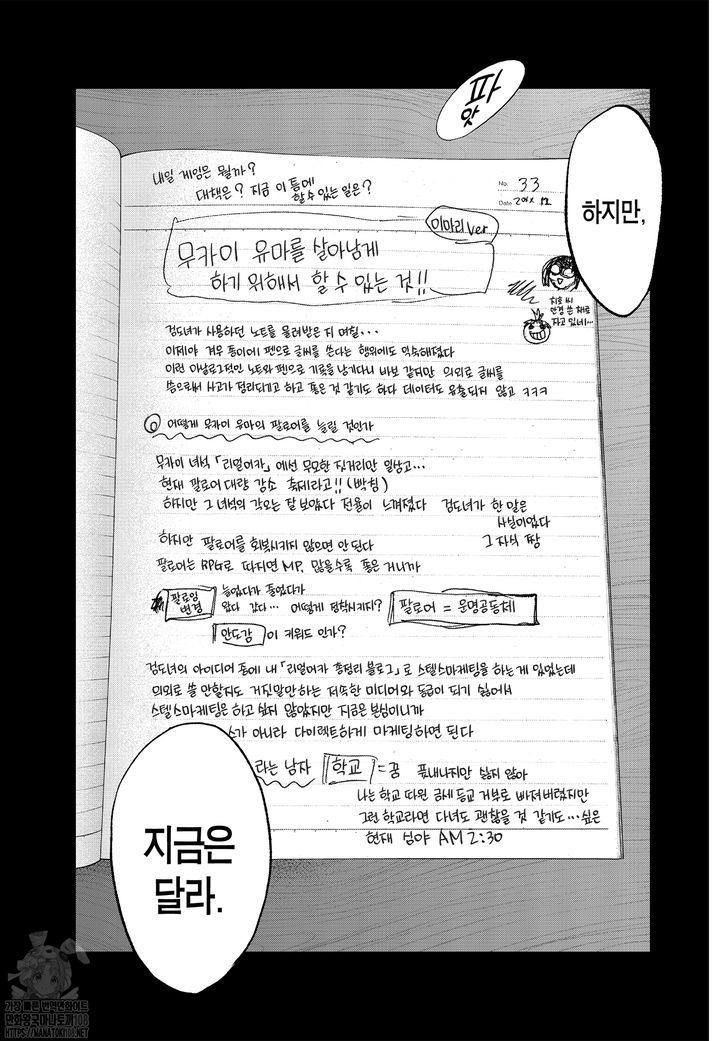 팟
하지만,
내일 게임은 뭘까?
대책은? 지금 이 틈에
할 수 있는 일은?
No. 33
Date 20XX 12
이마리 ver
무카이 유마를 살아남게
하기 위해서 할 수 있는 것!!
씨
안경 쓴 채로
자고 있네…
검도녀가 사용하던 노트를 물려받은 지 며칠...
이제야 겨우 종이에 펜으로 글씨를 쓴다는 행위에도 익숙해졌다
이런 아날로그적인 노트와 펜으로 기록을 남기다니 바보 같지만 의외로 글씨를
씀으로써 사고가 정리되기고 하고 좋은 것 같기도 하다 데이터도 유출되지 않고 ㅋㅋㅋ
어떻게 무카이 유마의 팔로어를 늘릴 것인가
무카이 녀석 「리얼어카」에선 무모한 짓거리만 일삼고...
현재 팔로어 대량 감소 축제라고!! (빡침)
하지만 그 녀석의 각오는 잘 보았다 전율이 느껴졌다 검도녀가 한 말은
사실이었다
하지만 팔로어를 회복시키지 않으면 안 된다 그 자식 짱
팔로어는 RPG로 따지면 MP. 많을수록 좋은 거니까
팔로잉
변경
늘었다가 줄었다가
왔다 갔다... 어떻게 정착시키지?
팔로어 = 운명공동체
안도감 이 키워드 인가?
검도녀의 아이디어 중에 내 「리얼어카 총정리 블로그」로 스텔스마케팅을 하는 게 있었는데
의외로 쓸 만할지도 거짓말만하는 저속한 미디어와 동급이 되기 싫어서
스텔스마케팅은 하고 싶지 않았지만 지금은 본심이니까
스가 아니라 다이렉트하게 마케팅하면 된다
라는 남자 학교 = 꿈 폼내나지만 싫지 않아
나는 학교 따윈 금세 등교 거부로 빠져버렸지만
그런 학교라면 다녀도 괜찮을 것 같기도...싶은
현재 심야 AM 2:30
지금은
달라.
가장 빠른 번역만화사이트
만화왕국마나토끼108
HTTPS://MANATOKI108.NET